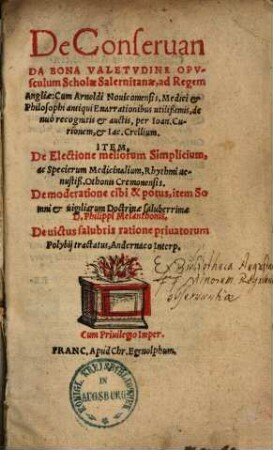 De Conseruan
DA BONA VALETVDINE OPVsculum
Scholæ Salernitanæ, ad Regem
Angliæ: Cum Arnoldi Nouicomensis, Medici &
Philosophi antiqui Enarrationibus utilissimis, denuò
recognitis & auctis, per Ioan. Curionem,
& Iac. Crellium.
ITEM,
De Electione meliorum Simplicium,
ac Specierum Medicinalium, Rhythmi uenustiss.
Othonis Cremonensis.
De moderatione cibi & potus, item Somni
& uigiliarum Doctrina saluberrima
D. Philippi Melanthonis.
De uictus salubris ratione priuatorum
Polybij tractatus, Andernaco Interp.
Ex Bibliotheca
FF Minorum
obseruantiæ
Cum Priuilegio Imper.
FRANC. Apud Chr. Egenolphum.
KÖNIGL. KREISBIBLIOTHEK
IN
AUGSBURG